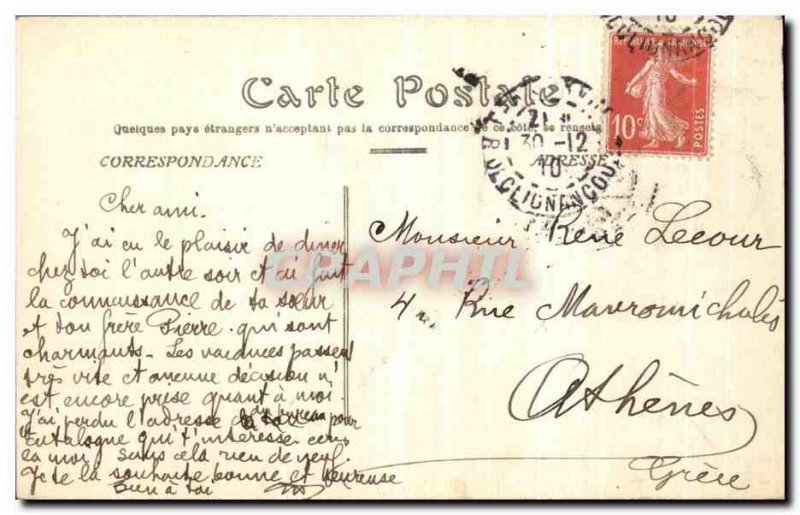 Carte Postale
Quelques pays étrangers n'acceptant pas la correspondance de ce côté, se renseis
CORRESPONDANCE
ADRESSE
10c
POSTES
21
30-12
10
R. DE CLIGNANCOURT
Cher ami.
J'ai eu le plaisir de diner
chez toi l'autre soir et ai fait
la connaissance de ta sœur
et ton frère Pierre qui sont
charmants. Les vacances passent
très vite et aucune décision n'
est encore prise quant à moi.
J'ai perdu l'adresse du bureau pour
catalogue qui t'intéresse
sans cela rien de neuf.
Je te la souhaite bonne et heureuse
Bien à toi
Monsieur René Lecour
4, Rue Mavromichalis
Athènes
Grèce
CPAPHIL